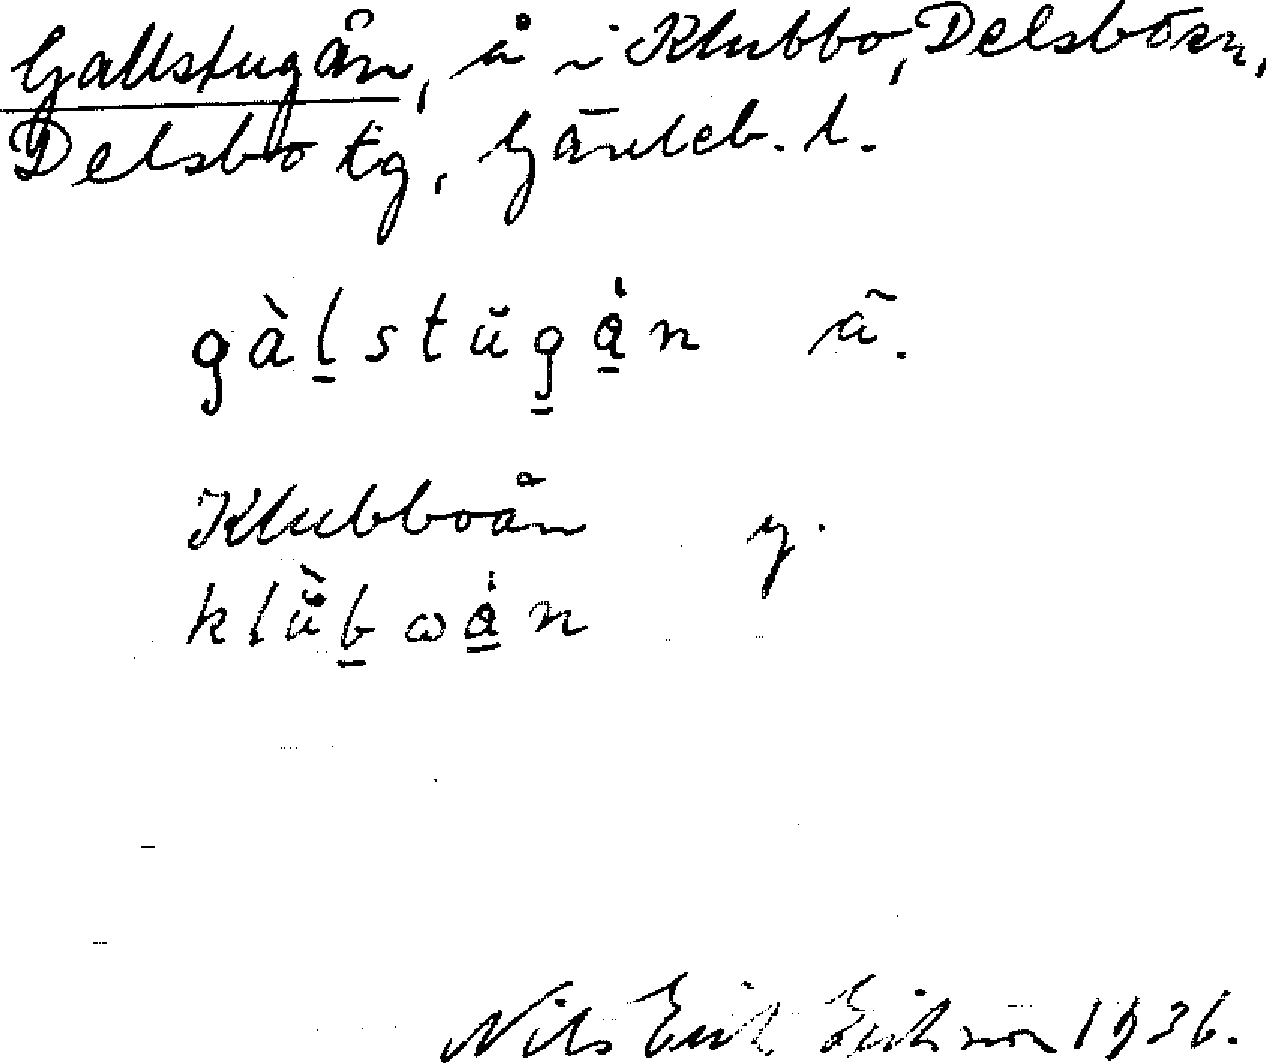 Gallstugån, å i Klubbo, Delsbo sn,
Delsbo tg, Gävleb. l.
gàl̠stŭg̠å̠n ä.
Klubboån y.
klŭ̀b̠ωå̠n
Nils Erik Eriksson 1936.